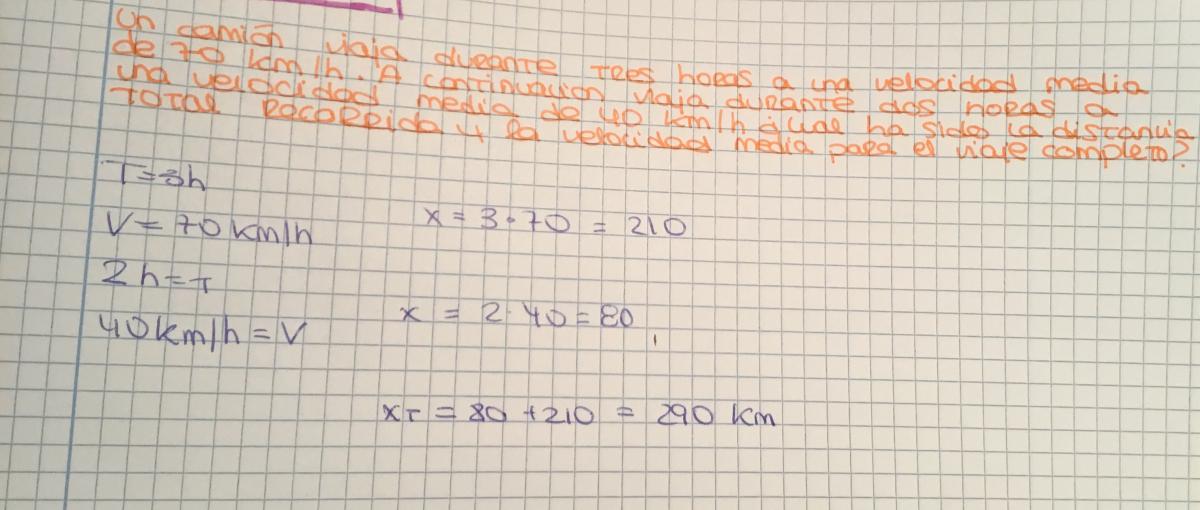 Un camión viaja durante tres horas a una velocidad media
de 70 km/h. A continuación viaja durante dos horas a
una velocidad media de 40 km/h ¿cual ha sido la distancia
total recorrida y la velocidad media para el viaje completo?
T=3h
V=70 km/h
x = 3·70 = 210
2h=T
40km/h=V
x = 2·40=80
xT = 80 +210 = 290 km